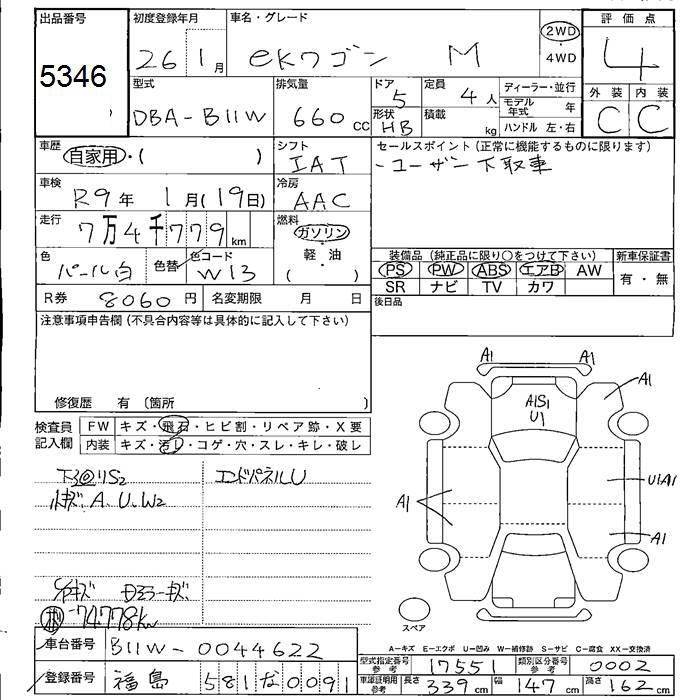 出品番号 初度登録年月 車名・グレード 2WD ・ 4WD 評価点
5346 26 1月 eKワゴン M 4
型式 排気量 ドア 定員 ディーラー・並行 外装 内装
DBA-B11W 660cc 5 4人 モデル年式 年 C C
形状 HB 積載 kg ハンドル 左・右
車歴 自家用・( ) シフト IAT セールスポイント(正常に機能するものに限ります)
・ユーザー下取車
車検 R9年 1月(19日) 冷房 AAC
走行 7万4千779km 燃料 ガソリン
軽・油
( )
色 パール白 色替 色コード W13
装備品(純正品に限り○をつけて下さい) 新車保証書
PS PW ABS エアB AW 有・無
SR ナビ TV カワ
R券 8060円 名変期限 月 日 後日品
注意事項申告欄(不具合内容等は具体的に記入して下さい)
修復歴 有 〔箇所 〕
検査員記入欄 FW キズ・飛石・ヒビ割・リペア跡・X要
内装 キズ・汚レ・コゲ・穴・スレ・キレ・破レ
エンドパネルU
小キズ A、U、W2
74778km
A1 A1
A1
A1S1
U1
A1
U1A1
A1
スペア
A-キズ E-エクボ U-凹み W-補修跡 S-サビ C-腐食 XX-交換済
車台番号 B11W-0044622
型式指定番号 参考 17551 類別区分番号 参考 0002
登録番号 福島 581 な 0091
車庫証明用 参考 長さ 339cm 幅 147cm 高さ 162cm